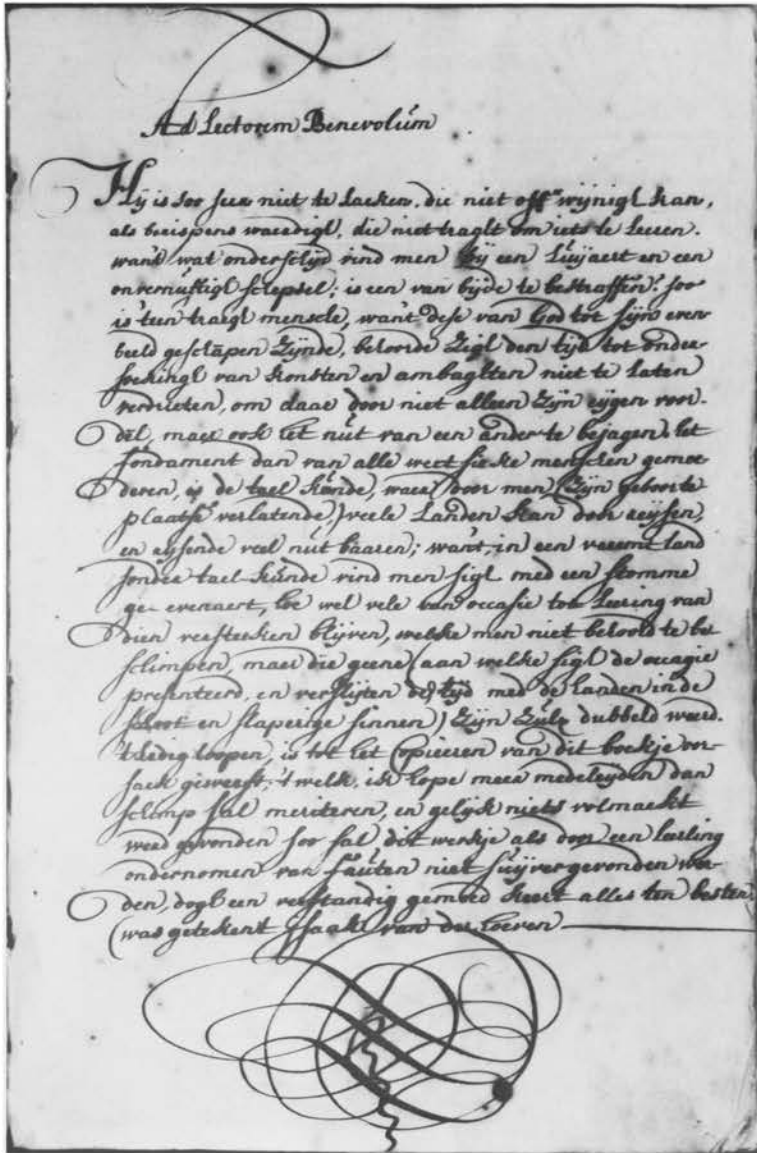 Ad Lectorem Benevolúm.
Hij is soo seer niet te laeken, die niet off wijnigh kan,
als berispens waerdigh, die niet traght om iets te leeren.
want wat onderschijd vind men bij een Lúijaert en een
onvernúftigh schepsel; is een van bijde te bestraffen? soo
is 't een traegh mensche, want dese van God tot sijn even-
beeld geschapen Zijnde, behoorde Zigh den tijd tot onder-
soekingh van Konsten en ambaghten niet te laten
verdrieten, om daar door niet alleen Zijn eijgen voor-
deel, maer ook het nút van een ander te bejagen. het
fondament dan van alle weetsieke menschen gemoe-
deren, is de tael kúnde, waer door men (Zijn geboorte
plaatse verlatende,) veele Landen kan door reijsen,
en eijsende veel nút baaren; want, in een vreemt land
sonder tael kúnde vind men sigh med een stomme
ge-evenaert, hoe wel vele van occasie tot Leering van
dien versteeken blijven, welke men niet behoord te be-
schimpen, maer die geene (aan welke sigh de occagie
presenteerd, en verslijten de tijd med de handen in de
schoot en slaperige sinnen) Zijn Zúlx dubbeld weerd.
't Ledig loopen, is tot het Copieeren van dit boekje oor-
saek geweest, 't welk, ick hope meer medeleijden dan
schimp sal meriteren, en gelijck niets volmaekt
werd gevonden soo sal dit werkje als door een leerling
ondernomen van faúten niet súijver gevonden wer-
den, dogh een verstandig gemoed keert alles ten besten.
(was getekent Isaak van der Hoeven